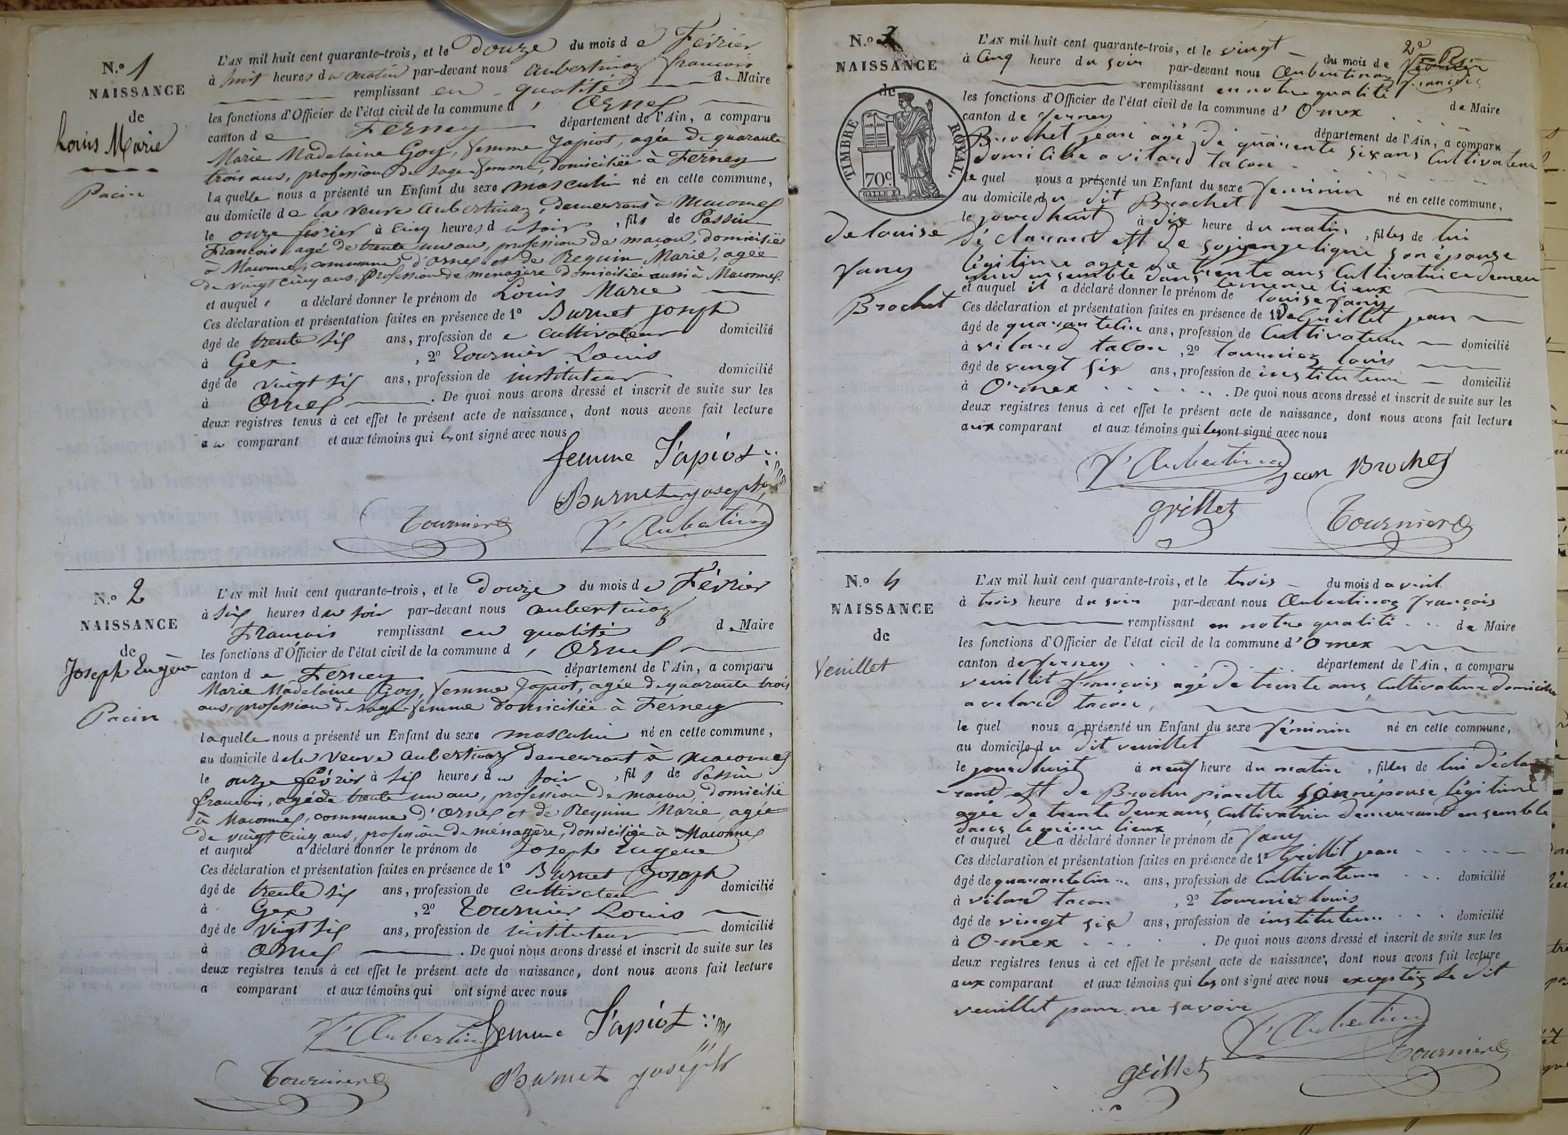 N.o 1
NAISSANCE
de
Louis Marie
Pacin
L'AN mil huit cent quarante-trois, et le douze du mois de Février
à huit heures du matin par-devant nous Aubertinaz François
remplissant en qualité de Maire
les fonctions d'Officier de l'état civil de la commune d' Ornex
canton de Ferney département de l'Ain, a comparu
Marie Madelaine Goy, femme Japiot, agée de quarante
trois ans, profession de sage femme, domiciliée à Ferney
laquelle nous a présenté un Enfant du sexe masculin né en cette commune,
au domicile de la veuve Aubertinaz, demeurant à Maconnex
le onze février à cinq heures du soir, fils de Passin
François agé de trente un ans, profession de maçon, domicilié
à Maconnex, commune d'Ornex et de Reguin Marie, agée
de vingt cinq ans profession de menagère domiciliée aussi à Maconnex
et auquel a déclaré donner le prénom de Louis Marie
Ces déclaration et présentation faites en présence de 1° Burnet Joseph
âgé de trente six ans, profession de cultivateur domicilié
à Gex, 2° Tournier Louis
âgé de vingt six ans, profession de instituteur domicilié
à Ornex. De quoi nous avons dressé et inscrit de suite sur les
deux registres tenus à cet effet le présent acte de naissance, dont nous avons fait lecture
au comparant et aux témoins qui ont signé avec nous
femme Japiot
Burnet joseph
Tournier F. Aubertinaz
N.o 2
NAISSANCE
de
Joseph Eugène
Pacin
L'AN mil huit cent quarante-trois, et le douze du mois de Février
à six heures du soir par-devant nous Aubertinaz
François remplissant en qualité de Maire
les fonctions d'Officier de l'état civil de la commune d' Ornex
canton de Ferney département de l'Ain, a comparu
Marie Madelaine Goy, femme Japiot, agée de quarante trois
ans, profession de sage femme domiciliée à Ferney
laquelle nous a présenté un Enfant du sexe masculin né en cette commune,
au domicile de la veuve Aubertinaz demeurant à Maconnex
le onze février à six heures du soir, fils de Passin
François, agé de trente un ans, profession de maçon, domicilié
à Maconnex, commune d'Ornex et de Reguin Marie, agée
de vingt cinq ans, profession de ménagère, domiciliée à Maconnex
et auquel a déclaré donner le prénom de Joseph Eugène
Ces déclaration et présentation faites en présence de 1° Burnet Joseph
âgé de trente six ans, profession de cultivateur domicilié
à Gex, 2° Tournier Louis
âgé de vingt six ans, profession de instituteur domicilié
à Ornex. De quoi nous avons dressé et inscrit de suite sur les
deux registres tenus à cet effet le présent acte de naissance, dont nous avons fait lecture
a comparant et aux témoins qui ont signé avec nous
F. Aubertinaz femme Japiot
Tournier Burnet joseph
N.o 3
NAISSANCE
de
TIMBRE ROYAL.
70c
de louise
fany
Brochet
L'AN mil huit cent quarante-trois, et le vingt du mois de
à cinq heure du soir par-devant nous Aubertinaz François
remplissant en notre qualité de Maire
les fonctions d'Officier de l'état civil de la commune d'Ornex
canton de ferney département de l'Ain, a comparu
Brochet jean agé de quarente six ans Cultivateur
domicilié a vilard tacon
le quel nous a présenté un Enfant du sexe féminin né en cette commune,
au domicile du dit Brochet
le jourdhuit à dix heure du matin, filles de lui
déclarant et de ligne son épouse
légitime agée de trente ans Cultivatrice demeu
rant ensemble dans le meme lieux
et auquel il a déclaré donner le prénom de louise fany
Ces déclaration et présentation faites en présence de 1° Grillet jean
âgé de quarante cin ans, profession de Cultivateur domicilié
à vilard tacon, 2° tournier louis
âgé de vingt six ans, profession de instituteur domicilié
à Ornex. De quoi nous avons dressé et inscrit de suite sur les
deux registres tenus à cet effet le présent acte de naissance, dont nous avons fait lecture
aux comparant et aux témoins qui les ont signé avec nous
F. Aubertinaz jean Brochet
grillet Tournier
N.o 4
NAISSANCE
de
Veuillet
L'AN mil huit cent quarante-trois, et le trois du mois d avril
à trois heure du soir par-devant nous Aubertinaz françois
remplissant en notre qualité de Maire
les fonctions d'Officier de l'état civil de la commune d'Ornex
canton de ferney département de l'Ain, a comparu
veuillet françois agé de trente ans, Cultivateur domicilié
a vilard tacon,
le quel nous a présenté un Enfant du sexe féminin né en cette commune,
au domicile du dit veuillet
le jourdhuit à neuf heure du matin, filles de lui décla
rant et de Brochu pierette son épouse légitime
agée de trente deux ans, Cultivatrice demeurant ensemble
dans le même lieux
et auquel il a déclaré donner le prénom de fany
Ces déclaration et présentation faites en présence de 1° Grillet jean
âgé de quarante cin ans, profession de Cultivateur domicilié
à vilard tacon, 2° tournier louis
âgé de vingt six ans, profession de instituteur domicilié
à Ornex. De quoi nous avons dressé et inscrit de suite sur les
deux registres tenus à cet effet le présent acte de naissance, dont nous avons fait lecture
aux comparant et aux témoins qui les ont signé avec nous exceptez le dit
veuillet pour ne savoir
F. Aubertinaz
grillet Tournier